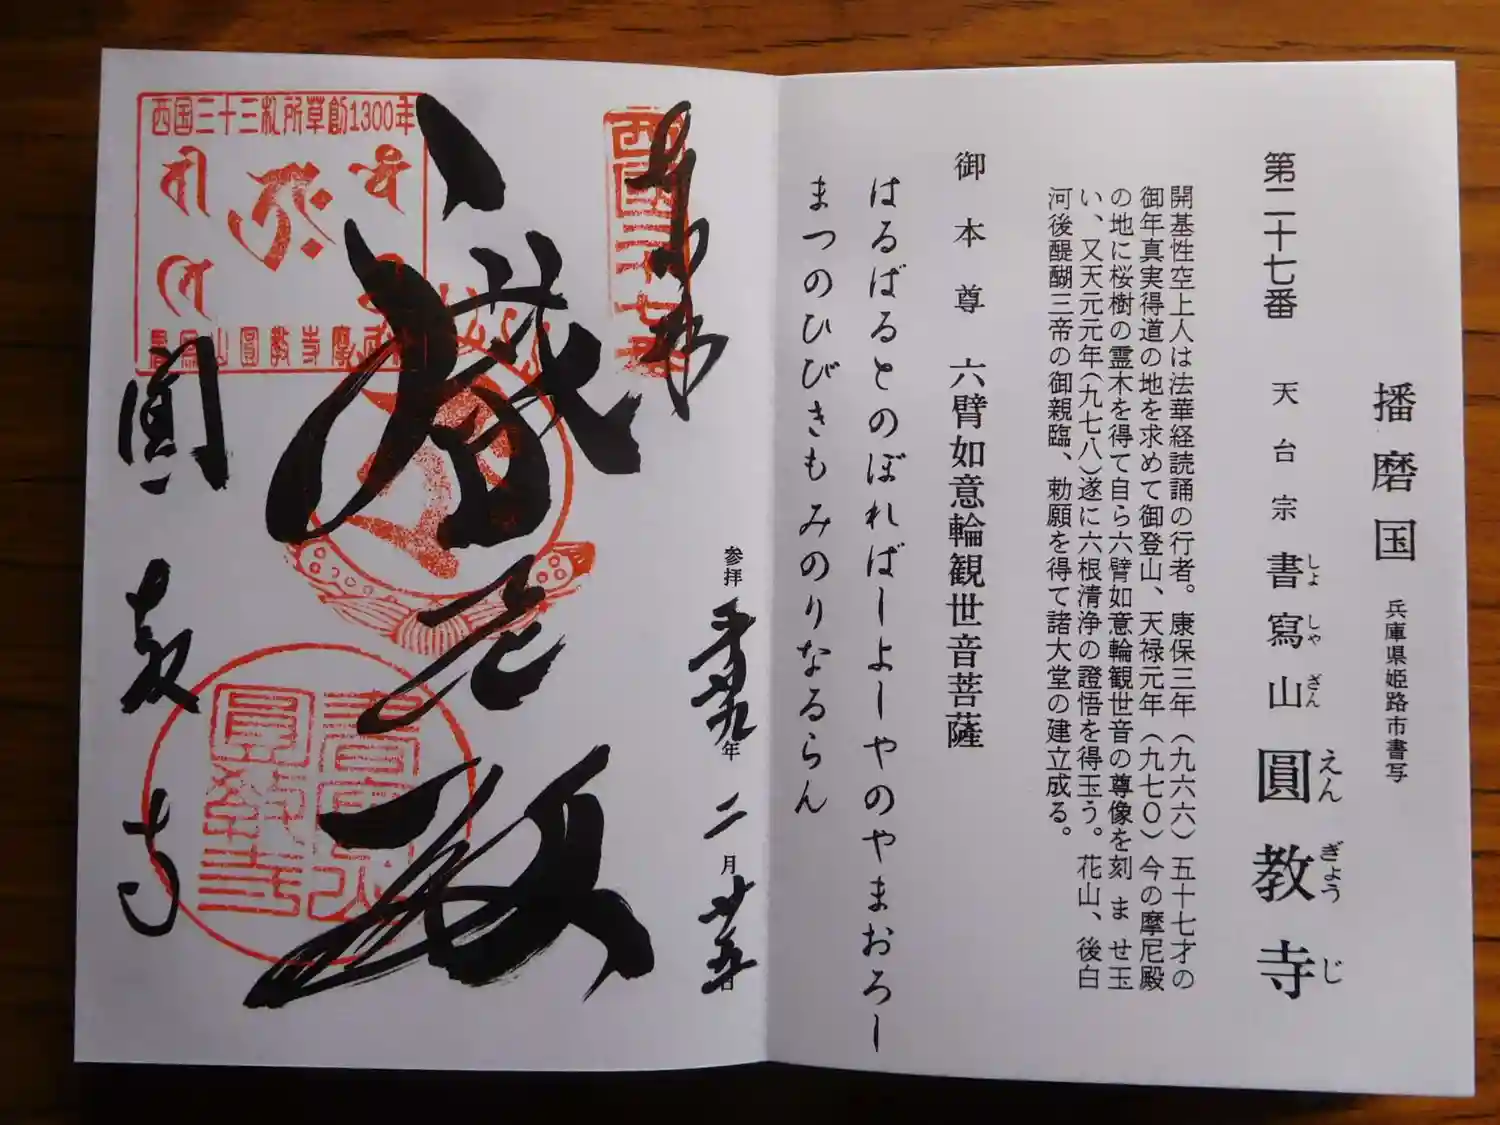 播磨国 兵庫県姫路市書写
第二十七番 天台宗 書寫山 圓教寺
しょ しゃ ざん えん ぎょう じ
開基性空上人は法華経読誦の行者。康保三年（九六六）五十七才の
御年真実得道の地を求めて御登山、天禄元年（九七〇）今の摩尼殿
の地に桜樹の霊木を得て自ら六臂如意輪観世音の尊像を刻ませ玉
い、又天元元年（九七八）遂に六根清浄の證悟を得玉う。花山、後白
河後醍醐三帝の御親臨、勅願を得て諸大堂の建立成る。
御本尊 六臂如意輪観世音菩薩
はるばるとのぼればしよーやのやまおろー
まつのひびきもみのりなるらん
参拝 平成廿九年 二月廿五日
西国二十七番
西国三十三札所草創1300年
書寫山圓教寺摩尼殿
圓教寺
書寫山圓教寺